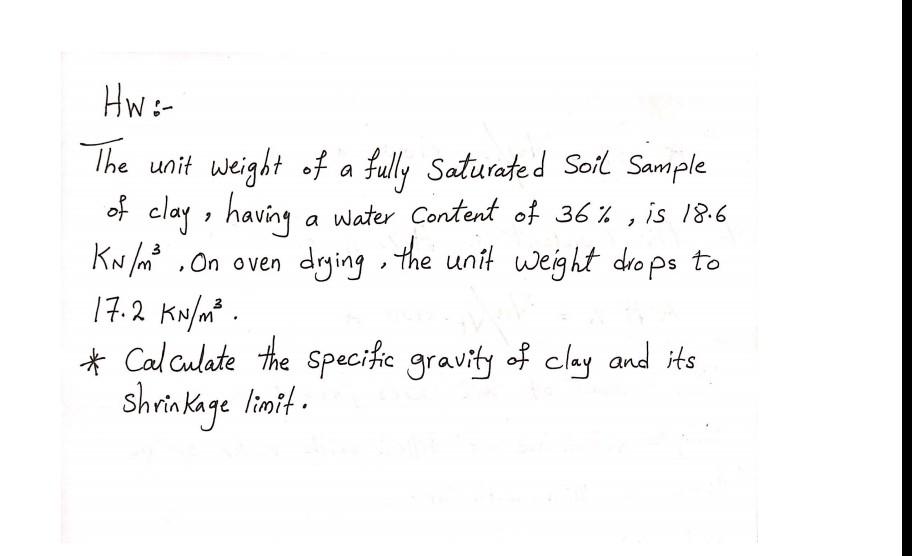 HW:-
The unit weight of a fully Saturated Soil Sample
of clay, having a water Content of 36%, is 18.6
KN/m³. On oven drying, the unit weight drops to
17.2 KN/m³.
* Calculate the specific gravity of clay and its
shrinkage limit.